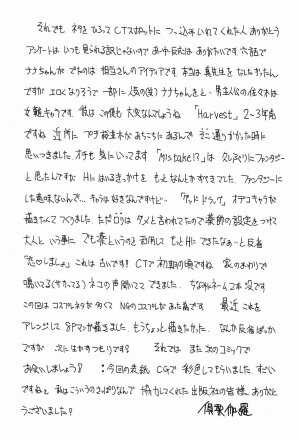 それでも ネタをひろって CTスポットに つっ込み いれてくれた人 ありがとう
アンケートは いつも見られる訳じゃないので
ナナちゃんが でたのは 担当さんのアイディアです 本当は 真先生を だしたかったん
ですが エロくなりそうで 一部に人気の(笑) ナナちゃんを… 男主人公の佐々木は
女難キャラです 彼は この後も 大変なんでしょうね 「Harvest」2~3年前
ですね 近所に プチ 雑木林が あちこちにあるんで そこ通りすがった時に
思いつきました オチも 気に入ってます 「Mistake!?」は 久しぶりにファンタジー
と思たんですが Hには いるきっかけを もっと なんとか すべきでした ファンタジーに
した意味ないんで… そっちは好きなんですけど… 「グッドドラッグ」オデコキャラが
描きたくて つくりました ただロリは ダメと言われたので 薬師の設定をつけて
大人という事に でも 薬というのを 活用して もっとHにできたなぁーと反省
「恋♡しましょ」これは古いです! CTで 初期の頃ですね 家のまわりで
鳴いてる(サカってる) ネコの声聞いてて できました ちなみに ネームで本没です
この回は コスプレネタが多くて NGのコスプレがあった為です 最近 これを
アレンジし 8Pマンガ 描きました もうちょっと描きたかった… なんか反省ばっか
ですが 次に はかすつもりです? それでは また 次のコミックで
お会いしましょう! :今回の表紙 CGで 彩色してもらいました すごい
ですねぇ 私はこういうのさっぱりなんで 協力してくれた 出版社の皆様 ありがと
うございました?